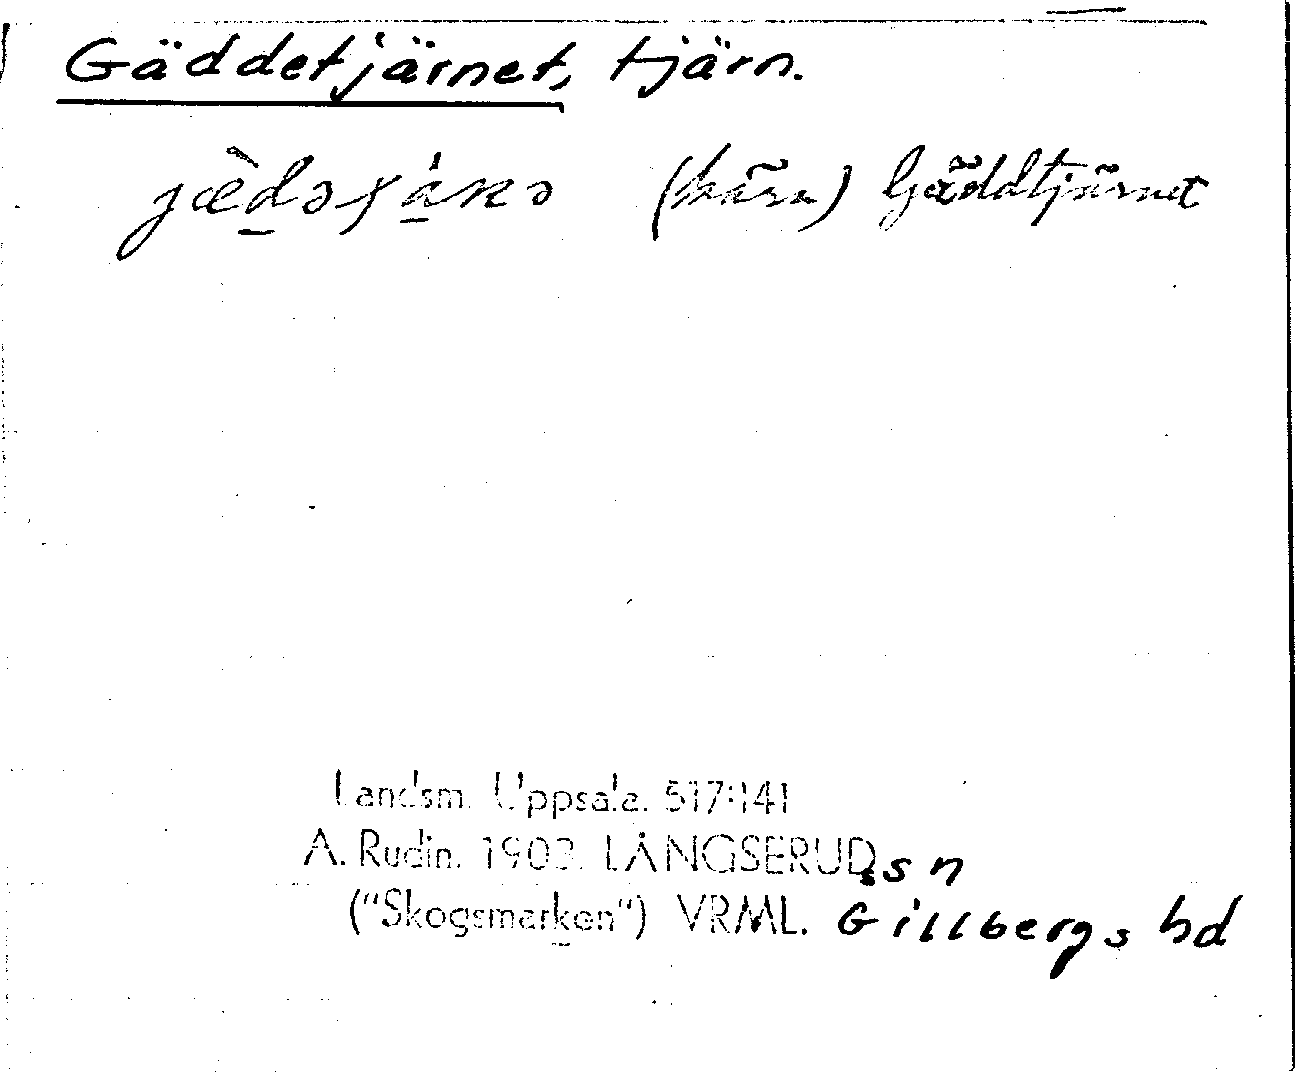 Gäddetjärnet, tjärn.
(kärn) Gäddtjärnet
Landsm. Uppsala. 517:141
A. Rudin. 1903. LÅNGSERUDs sn
("Skogsmarken") VRML. Gillbergs hd